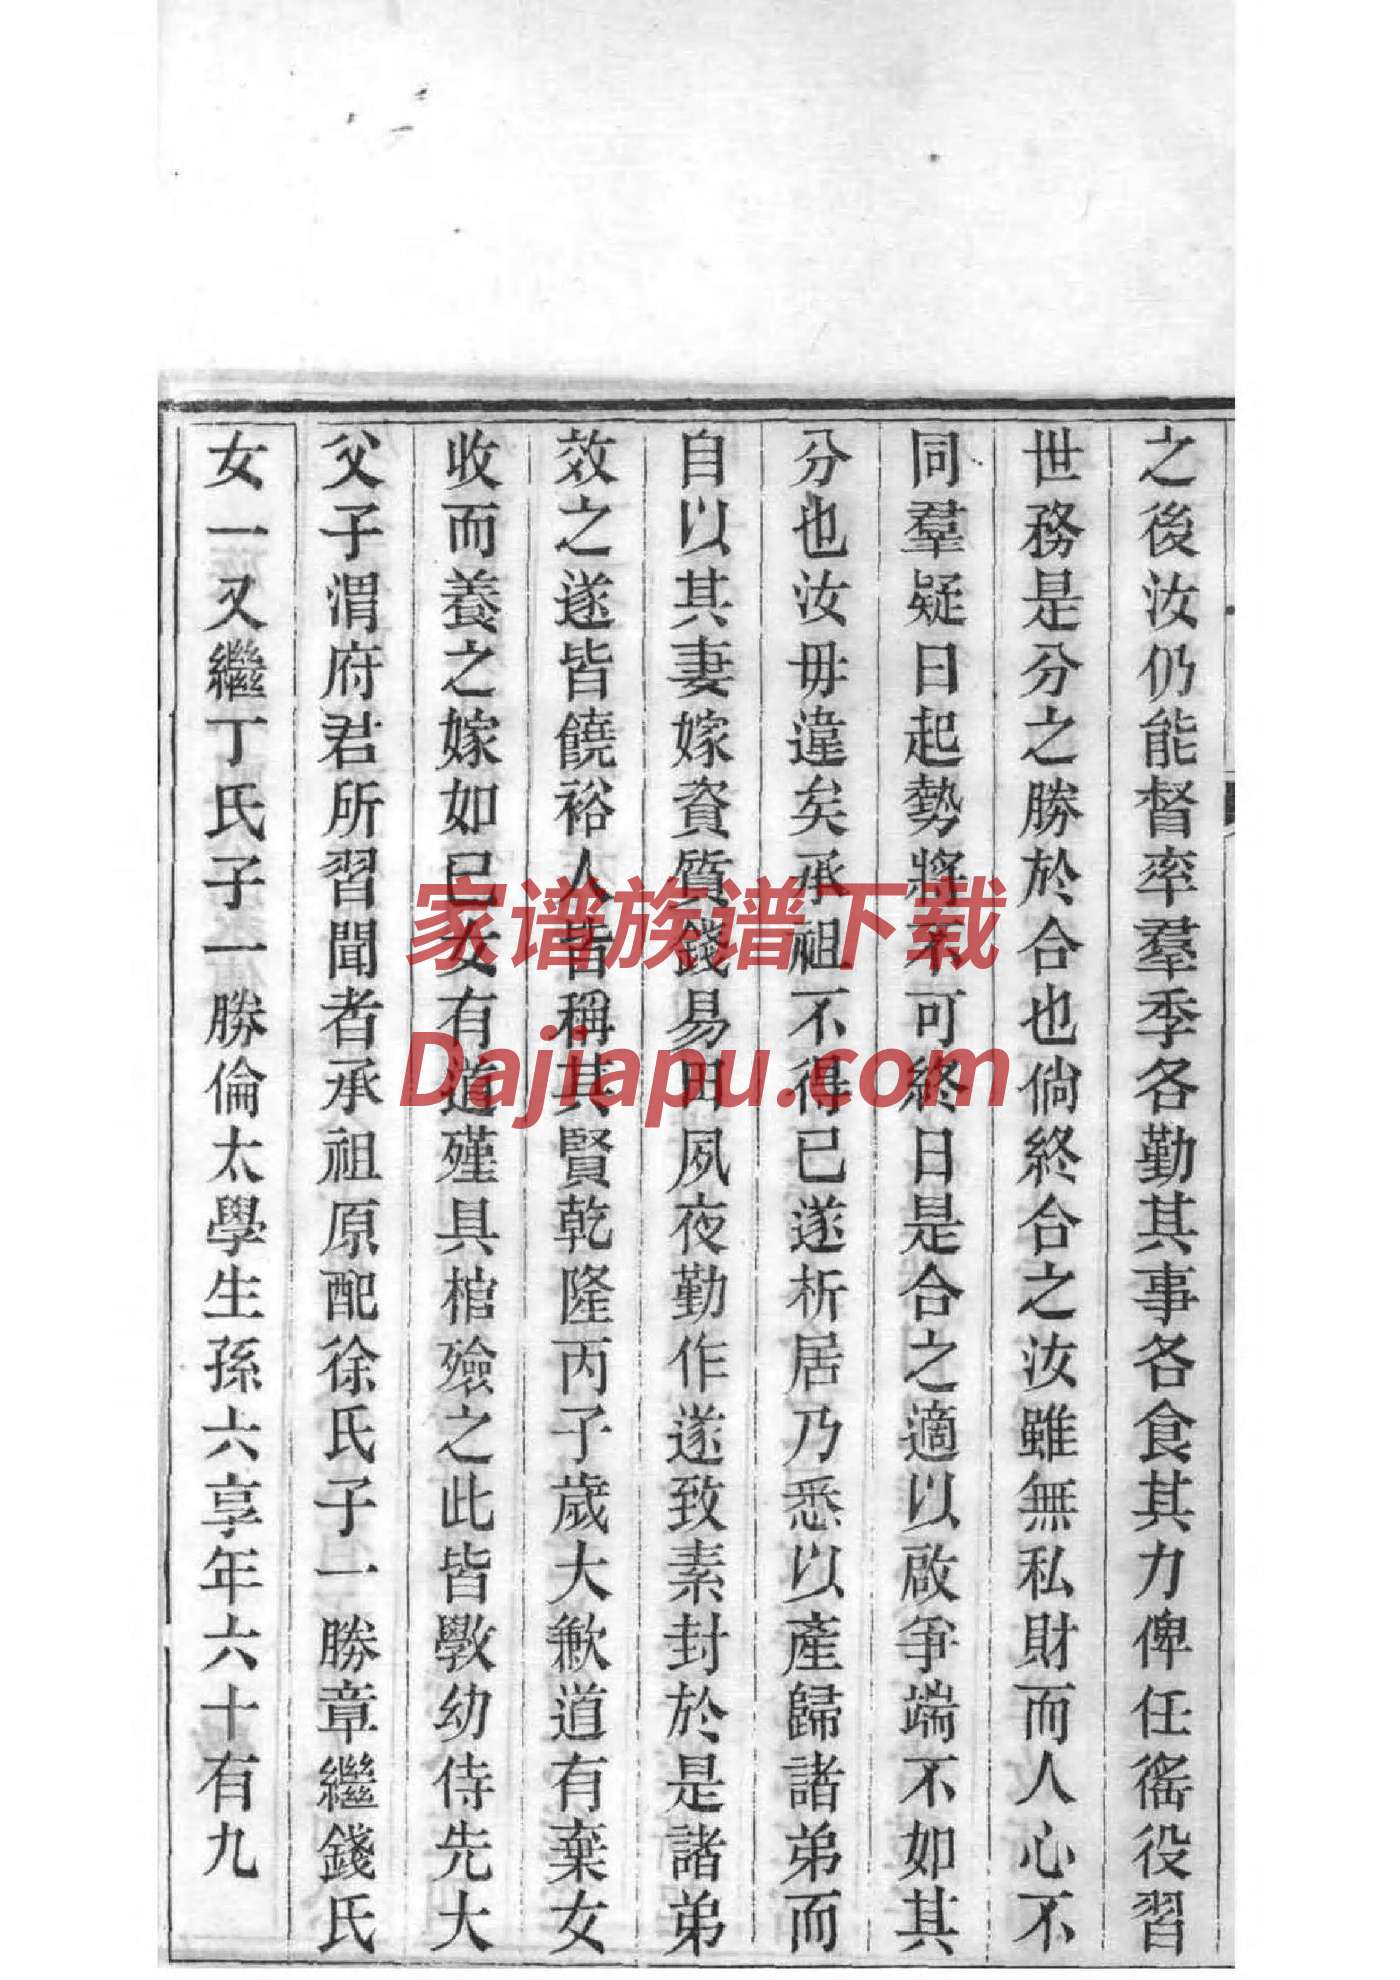 之後汝仍能督率羣季各勤其事各食其力俾任徭役習
世務是分之勝於合也倘終合之汝雖無私財而人心不
同羣疑日起勢將不可終日是合之適以啟爭端不如其
分也汝毋違矣承祖不得已遂析居乃悉以產歸諸弟而
自以其妻嫁資質錢易田夙夜勤作遂致素封於是諸弟
效之遂皆饒裕人皆稱其賢乾隆丙子歲大歉道有棄女
收而養之嫁如已女有道殣具棺殮之此皆斅幼侍先大
父子渭府君所習聞者承祖原配徐氏子一勝章繼錢氏
女一又繼丁氏子一勝倫太學生孫六享年六十有九
家谱族谱下载
Dajiapu.com